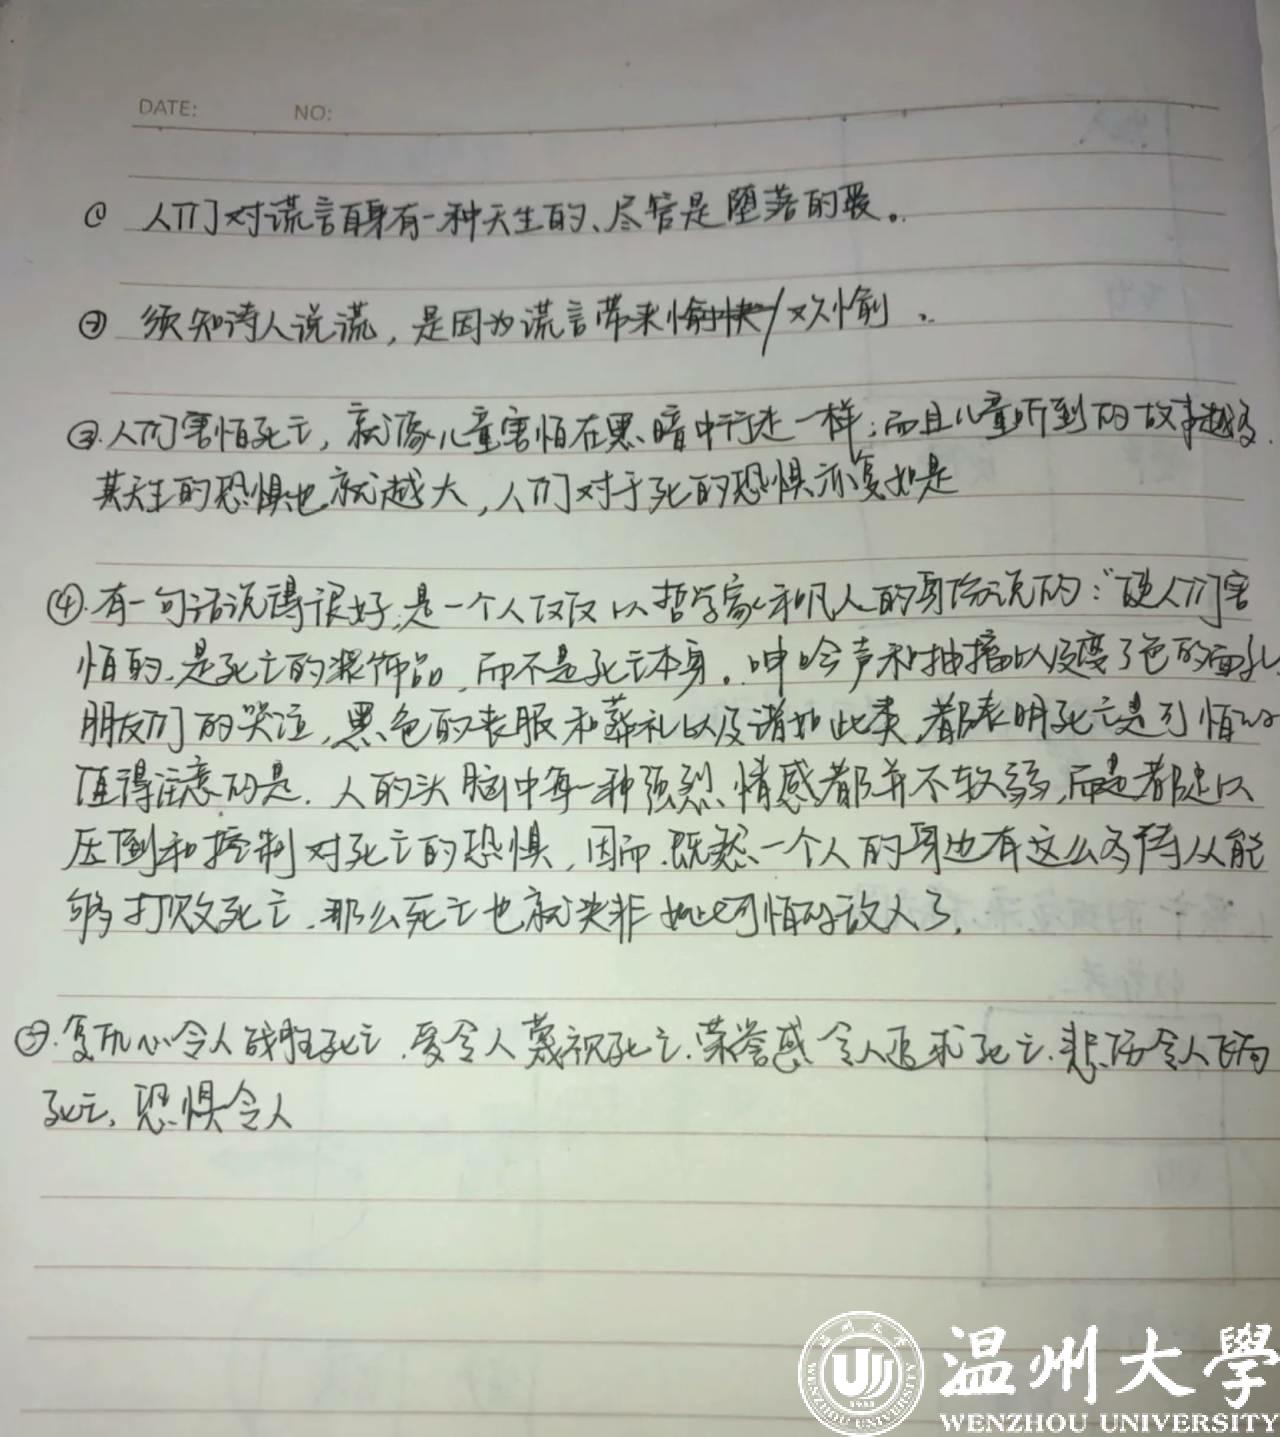 DATE: NO:
① 人们对谎言自身有一种天生的、尽管是堕落的爱。
② 须知诗人说谎，是因为谎言带来愉快/欢愉。
③.人们害怕死亡，就像儿童害怕在黑暗中行走一样；而且儿童听到的故事越多.
其天生的恐惧也就越大，人们对于死的恐惧亦复如是
④.有一句话说得很好,是一个人仅仅以哲学家和凡人的身份说的：“使人们害
怕的.是死亡的装饰品,而不是死亡本身。呻吟声和抽搐以及变了色的面孔,
朋友们的哭泣,黑色的丧服和葬礼以及诸如此类,都表明死亡是可怕的
值得注意的是.人的头脑中每一种强烈情感都并不软弱,而是都足以
压倒和控制对死亡的恐惧,因而.既然一个人的身边有这么多侍从能
够打败死亡.那么死亡也就决非如此可怕的敌人了.
⑤.复仇心令人战胜死亡.爱令人蔑视死亡.荣誉感令人追求死亡.悲伤令人飞向
死亡,恐惧令人
温州大學
WENZHOU UNIVERSITY